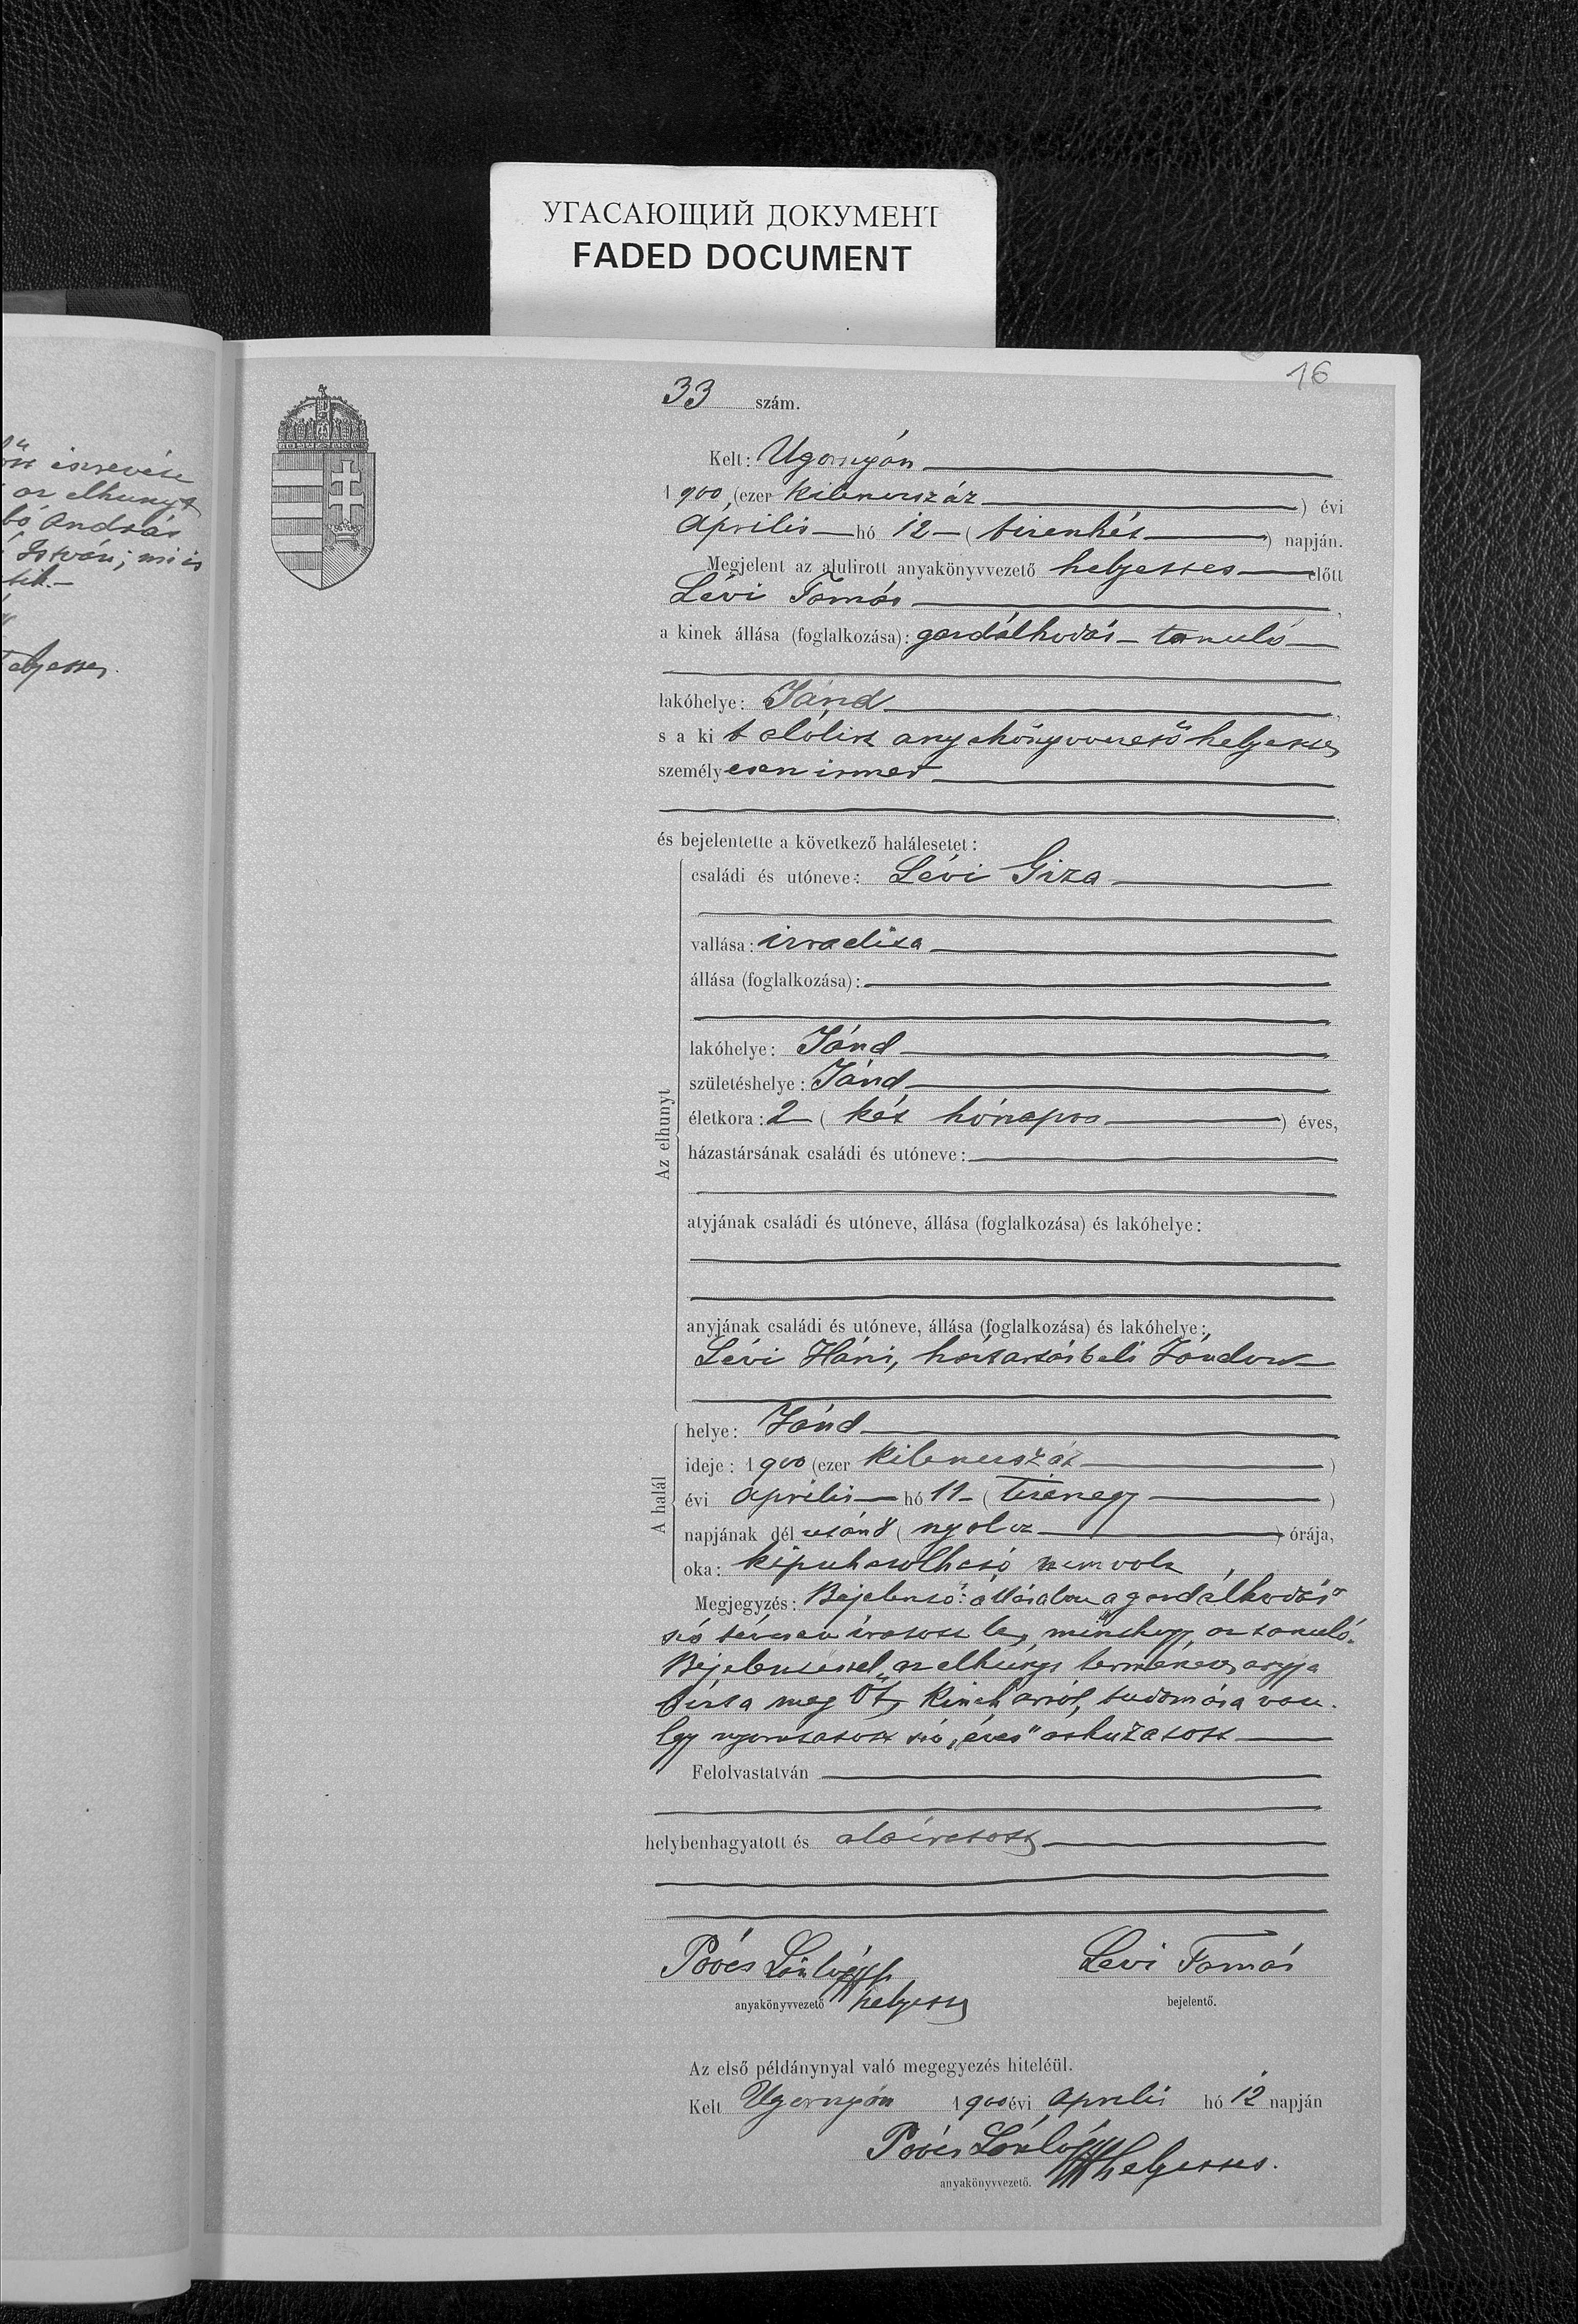 УГАСАЮЩИЙ ДОКУМЕНТ
FADED DOCUMENT
16
az elhunyt
András
István; mi is
33 szám.
Kelt: Ugornyán
1900, (ezer kilencszáz) évi
április hó 12 (tizenkét) napján.
Megjelent az alulirott anyakönyvvezető helyettes előtt
Lévi Tamás,
a kinek állása (foglalkozása): gazdálkodás-tanuló
lakóhelye: Jánd,
s a kit alólirt anyakönyvvezető helyettes
személyesen ismer
és bejelentette a következő halálesetet:
Az elhunyt
családi és utóneve: Lévi Giza
vallása: izraelita
állása (foglalkozása):
lakóhelye: Jánd
születéshelye: Jánd
életkora: 2 (két hónapos) éves,
házastársának családi és utóneve:
atyjának családi és utóneve, állása (foglalkozása) és lakóhelye:
anyjának családi és utóneve, állása (foglalkozása) és lakóhelye:
Lévi Háni, háztartásbeli Jándon
A halál
helye: Jánd
ideje: 1900 (ezer kilencszáz)
évi április hó 11 (tizenegy)
napjának dél után 8 (nyolcz) órája,
oka: kipuhatolható nem volt
Megjegyzés: Bejelentő: állásában "a gazdálkodás"
szó tévesen iratott be, minthogy az tanuló.
Bejelentéssel az elhúnyt természetes anyja
bízta meg őt, kinek arról, tudomása van.
Egy nyomtatott szó "éves" áthúzatott
Felolvastatván
helybenhagyatott és aláiratott
helyettes
anyakönyvvezető
Lévi Tamás
bejelentő.
Az első példánynyal való megegyezés hiteléül.
Kelt Ugornyán 1900 évi április hó 12 napján
helyettes.
anyakönyvvezető.